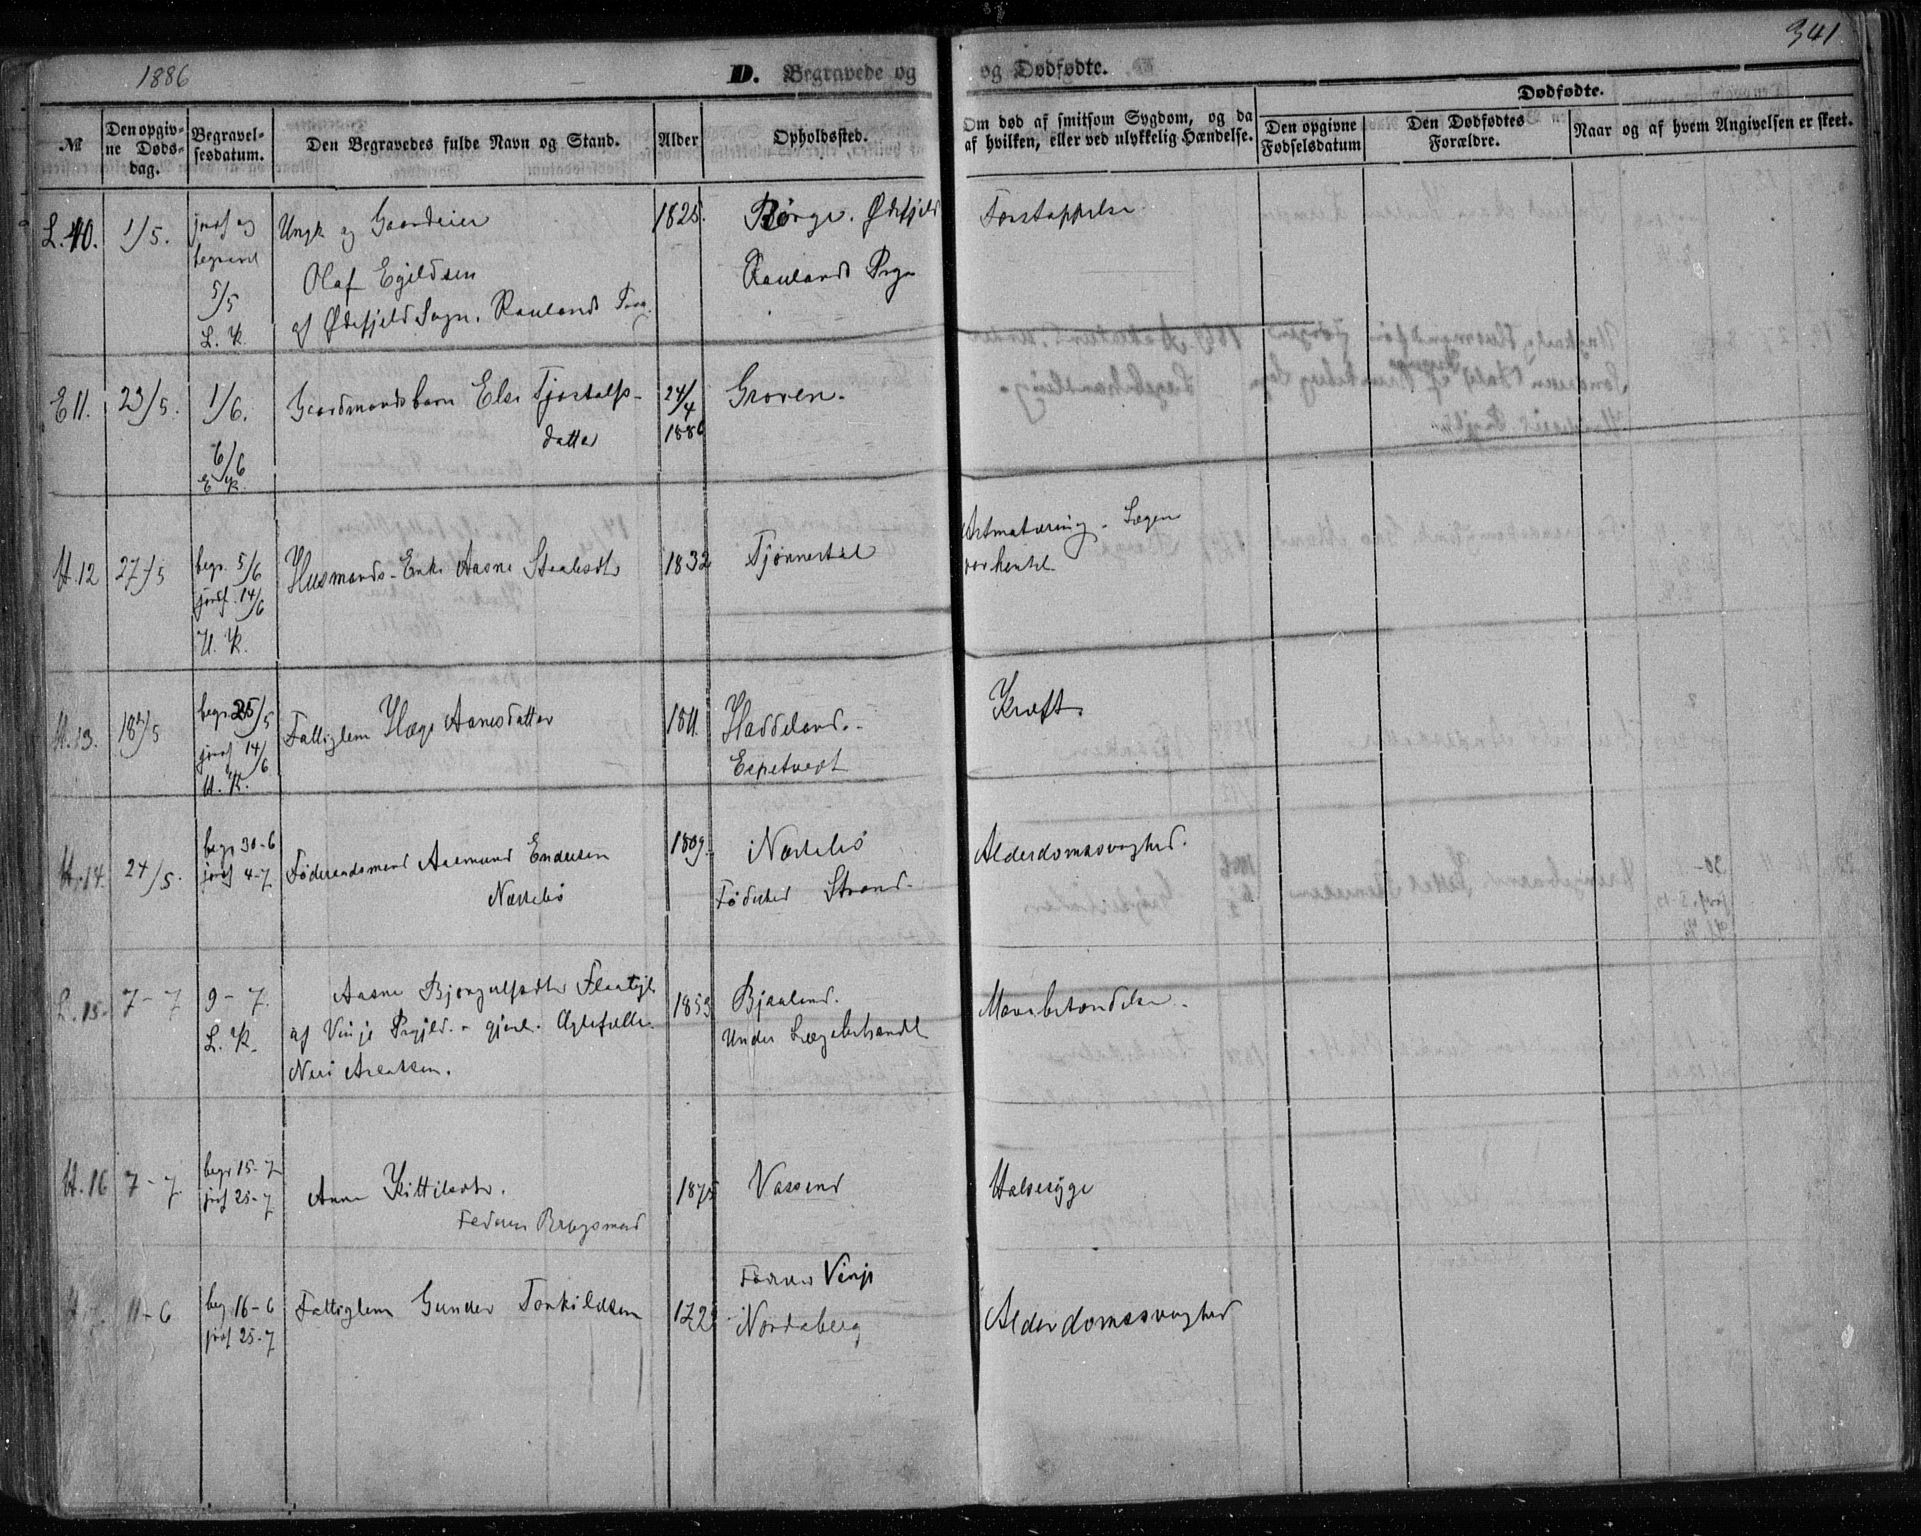 1886
D. Begravede og
og Dødfødte.
341
№
Den opgiv-
ne Døds-
dag.
Begravel-
sesdatum.
Den Begravedes fulde Navn og Stand.
Alder
Opholdssted.
Om død af smitsom Sygdom, og da
af hvilken, eller ved ulykkelig Hændelse.
Dødfødte.
Den opgivne
Fødselsdatum
Den Dødfødtes
Forældre.
Naar og af hvem Angivelsen er skeet.
L. 10. 1/5. jordf og Ungk og Gaardeier 1825. Børge. Øifjeld Forstoppelse
begravet
Olaf Egildsen Raulands Prgj
5/5
L. K. af Øifjeld Sogn. Raulands
E 11. 23/5. 1/6. Gaardmandsbarn Else Tjostolfs- 24/4 Groven.
datter 1886
6/6
E K.
H. 12 27/5 begr. 5/6 Husmands-Enke Aasne Staalesdtr 1832 Tjønnestal Lægen
var hentet
jordf. 14/6
H. K.
H. 13. 18/5 begr 25/5 Fattiglem Hæge Aanesdatter 1811. Haddeland.- Kræft.
jordf 14/6
Espetveit
H. K.
H. 14. 24/5. begr 30-6 Føderaadsmand Aasmund Endresen 1809. Næstebø Alderdomssvaghed.
jordf 4-7 Næstebø Fødested Strand.
L. 15. 7-7 9-7. Aasne Bjørgulfsdtr 1853 Bjaaland. Mavebetændelse.
L. K. af Vinje Prgjld. - gjenl. Ægtefælle Under Lægebehandl
Neri Aslaksen.
H. 16 7-7. begr 15-7 Anne Kittilsdtr. 1875 Vassend Halssyge
jordf 25-7 Faderen Brugsmand
11-6 beg 16-6 Fattiglem Gunder Torkildsen Fødested Vinje Alderdomssvaghed
jordf 25-7 Nordaberg